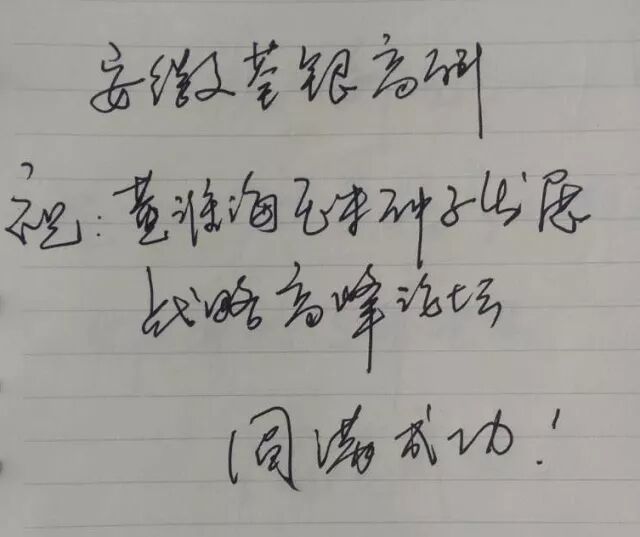 安徽荃银高科
祝:黄淮海玉米种子发展
战略高峰论坛
圆满成功!